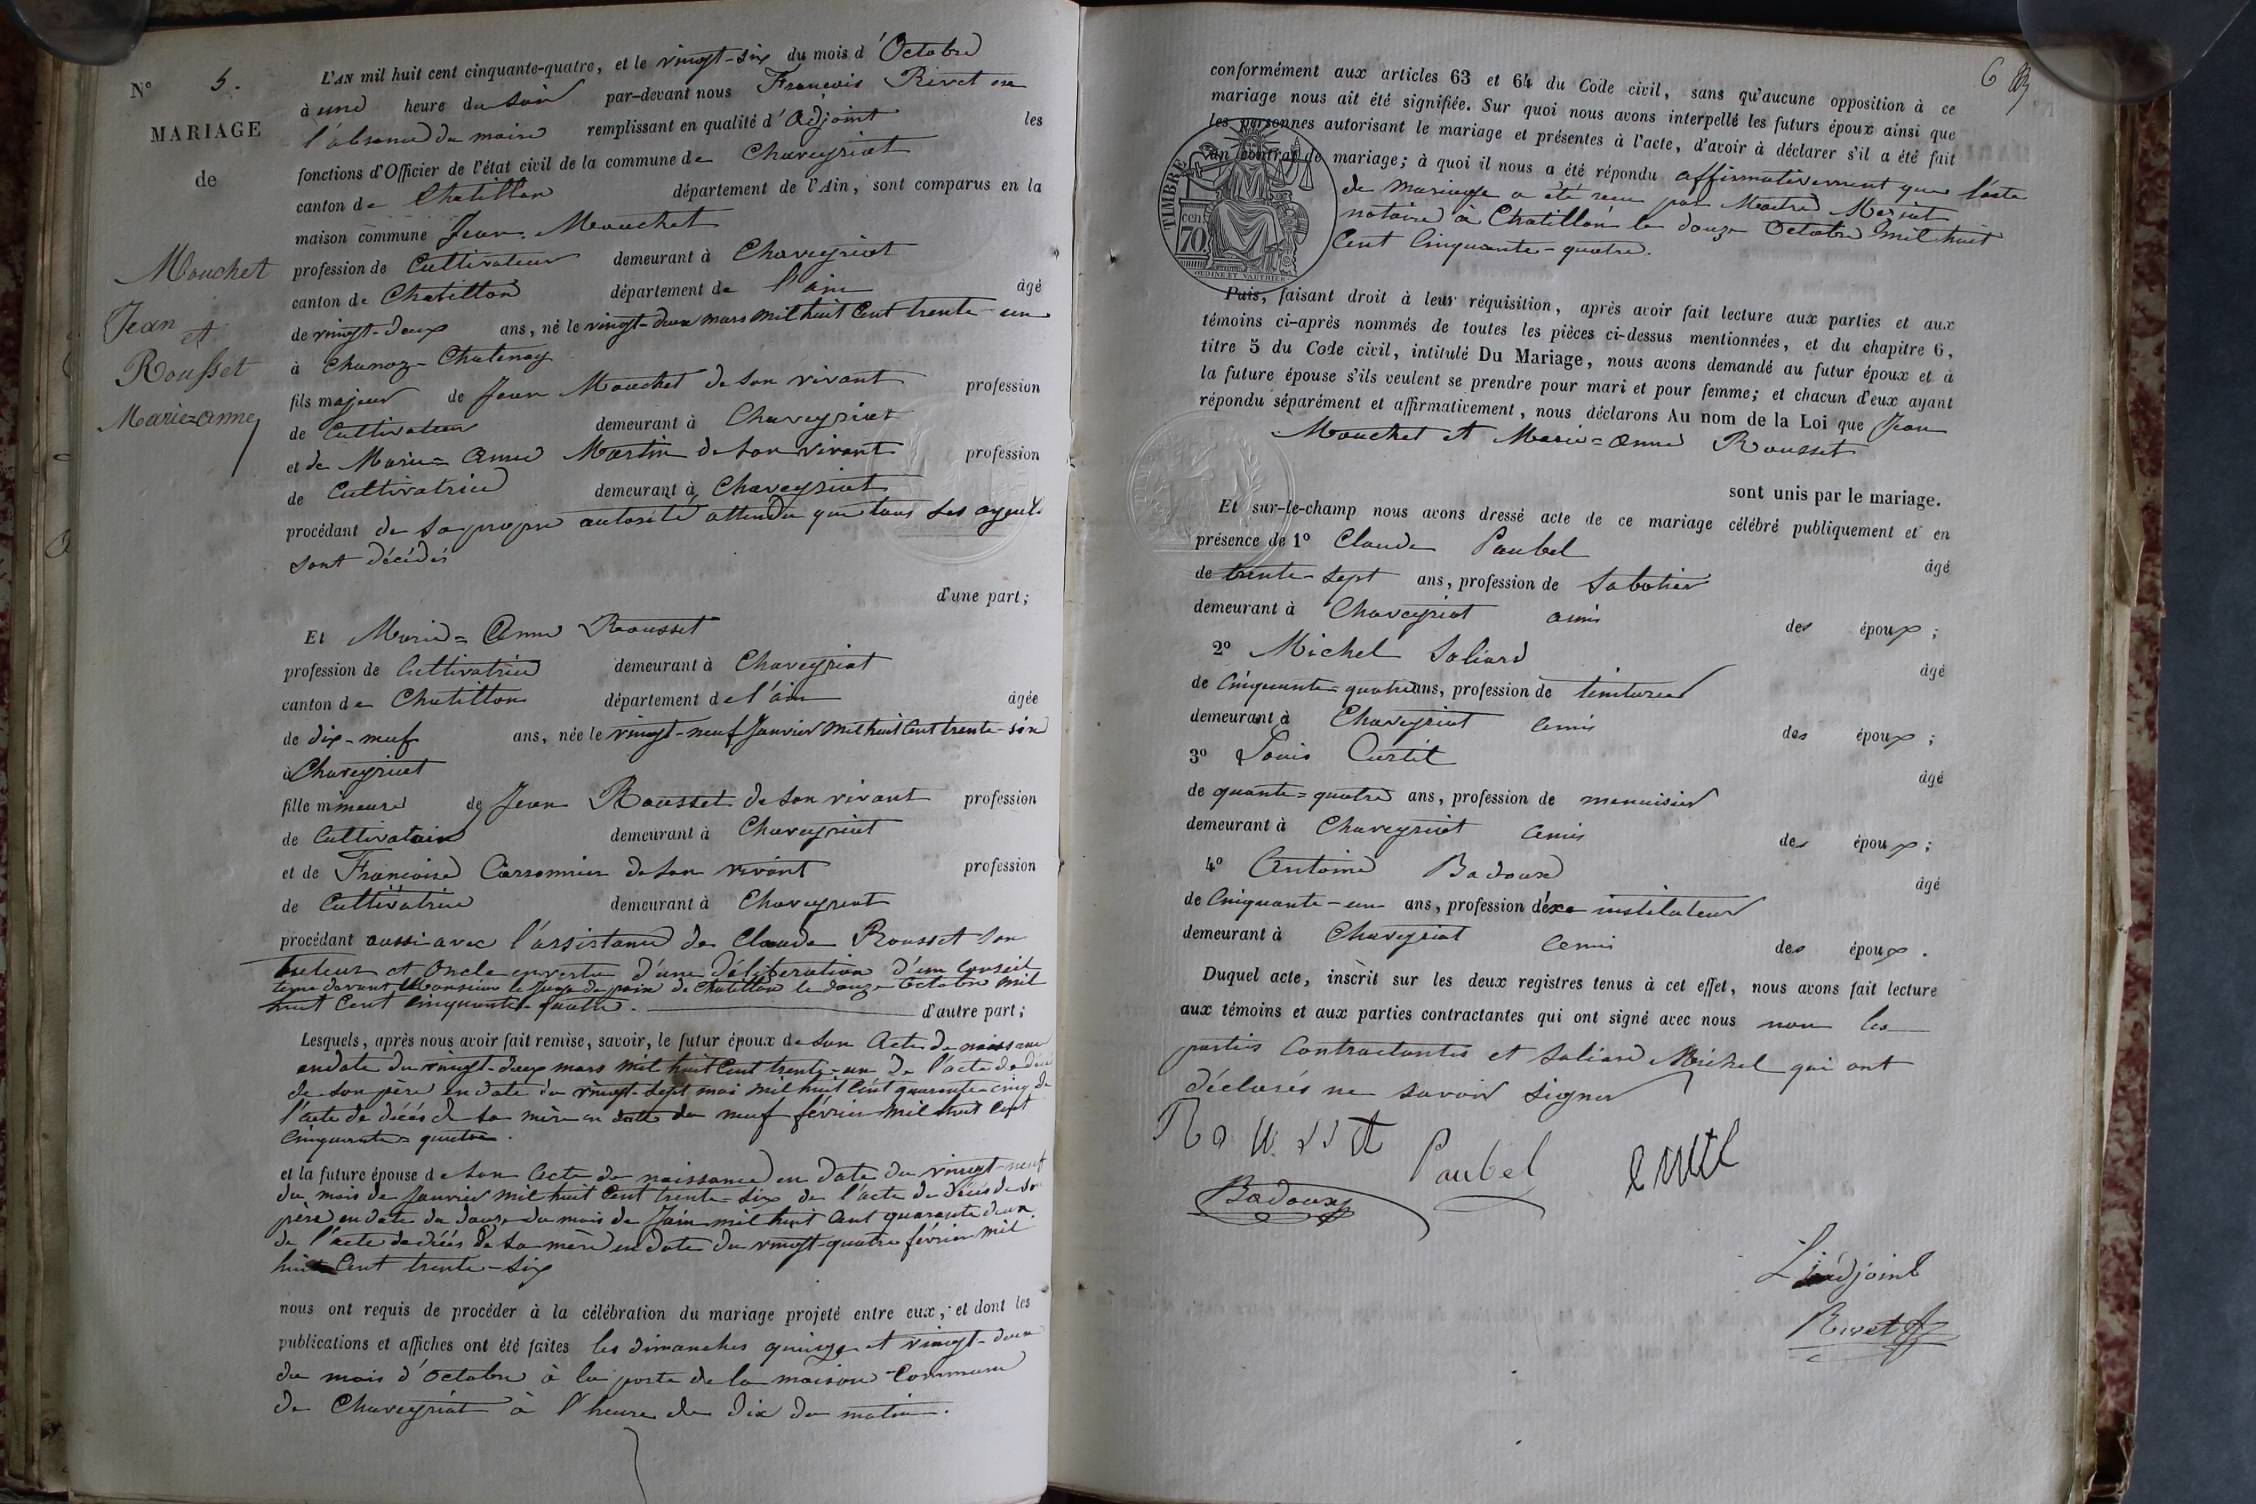 N° 5.
MARIAGE
de
Mouchet
Jean
et
Rousset
Marie=anne
L'AN mil huit cent cinquante-quatre, et le vingt-six du mois d'Octobre
à une heure du Soir par-devant nous François Rivet en
l'absence du maire remplissant en qualité d'Adjoint les
fonctions d'Officier de l'état civil de la commune de Chaveyriat
canton de Chatillon département de l'Ain, sont comparus en la
maison commune Jean Mouchet
profession de Cultivateur demeurant à Chaveyriat
canton de Chatillon département de l'ain âgé
de vingt-deux ans, né le vingt-deux mars mil huit Cent trente-un
à Chanoz-Chatenay
fils majeur de Jean Mouchet de son vivant profession
de Cultivateur demeurant à Chaveyriat
et de Marie=anne Martin de son vivant profession
de Cultivatrice demeurant à Chaveyriat
procédant de sa propre autorité attendu que tous ses ayeuls
sont décédés
d'une part;
Et Marie=Anne Rousset
profession de Cultivatrice demeurant à Chaveyriat
canton de Chatillon département de l'ain âgée
de dix-neuf ans, née le vingt-neuf Janvier mil huit Cent trente-six
à Chaveyriat
fille mineure de Jean Rousset de son vivant profession
de Cultivateur demeurant à Chaveyriat
et de Françoise Carronnier de son vivant profession
de Cultivatrice demeurant à Chaveyriat
procédant aussi avec l'assistance de Claude Rousset son
tuteur et Oncle en vertu d'une délibération d'un Conseil
tenu devant Monsieur le Juge de paix de Chatillon le douze Octobre mil
huit Cent Cinquante-quatre. d'autre part;
Lesquels, après nous avoir fait remise, savoir, le futur époux de son Acte de naissance
en date du vingt-deux mars mil huit Cent trente-un De l'acte de décès
de son père en date du vingt-sept mai mil huit Cent quarante-cinq de
l'acte de décès de sa mère en date du neuf février mil huit Cent
Cinquante=quatre.
et la future épouse de son Acte de naissance en date du vingt-neuf
du mois de Janvier mil huit Cent trente-six de l'acte de décès de son
père en date du douze du mois de Juin mil huit Cent quarante deux
de l'acte de décès de sa mère en date du vingt-quatre février mil
huit Cent trente-six
nous ont requis de procéder à la célébration du mariage projeté entre eux, et dont les
publications et affiches ont été faites les dimanches quinze et vingt-deux
du mois d'Octobre à la porte de la maison Commune
de Chaveyriat à l'heure de dix du matin.
6
conformément aux articles 63 et 64 du Code civil, sans qu'aucune opposition à ce
mariage nous ait été signifiée. Sur quoi nous avons interpellé les futurs époux ainsi que
les personnes autorisant le mariage et présentes à l'acte, d'avoir à déclarer s'il a été fait
un contrat de mariage; à quoi il nous a été répondu affirmativement que l'acte
de mariage a été reçu par Maitre Moriat
notaire à Chatillon le douze Octobre mil huit
Cent Cinquante-quatre.
TIMBRE
70 cen
OUDINE ET VAUTHIER
Puis, faisant droit à leur réquisition, après avoir fait lecture aux parties et aux
témoins ci-après nommés de toutes les pièces ci-dessus mentionnées, et du chapitre 6,
titre 5 du Code civil, intitulé Du Mariage, nous avons demandé au futur époux et à
la future épouse s'ils veulent se prendre pour mari et pour femme; et chacun d'eux ayant
répondu séparément et affirmativement, nous déclarons Au nom de la Loi que Jean
Mouchet et Marie=anne Rousset
sont unis par le mariage.
Et sur-le-champ nous avons dressé acte de ce mariage célébré publiquement et en
présence de 1° Claude Paubel âgé
de trente-sept ans, profession de Sabotier
demeurant à Chaveyriat ami des époux;
2° Michel Saliard âgé
de Cinquante=quatre ans, profession de teinturier
demeurant à Chaveyriat ami des époux;
3° Louis Curtil âgé
de quante=quatre ans, profession de menuisier
demeurant à Chaveyriat ami des époux;
4° Antoine Badoux âgé
de Cinquante-un ans, profession d'éxe instituteur
demeurant à Chaveyriat ami des époux.
Duquel acte, inscrit sur les deux registres tenus à cet effet, nous avons fait lecture
aux témoins et aux parties contractantes qui ont signé avec nous non les
parties Contractantes et Saliard Michel qui ont
déclarés ne savoir signer
Rousset Paubel Curtil
Badoux
L'adjoint
Rivet